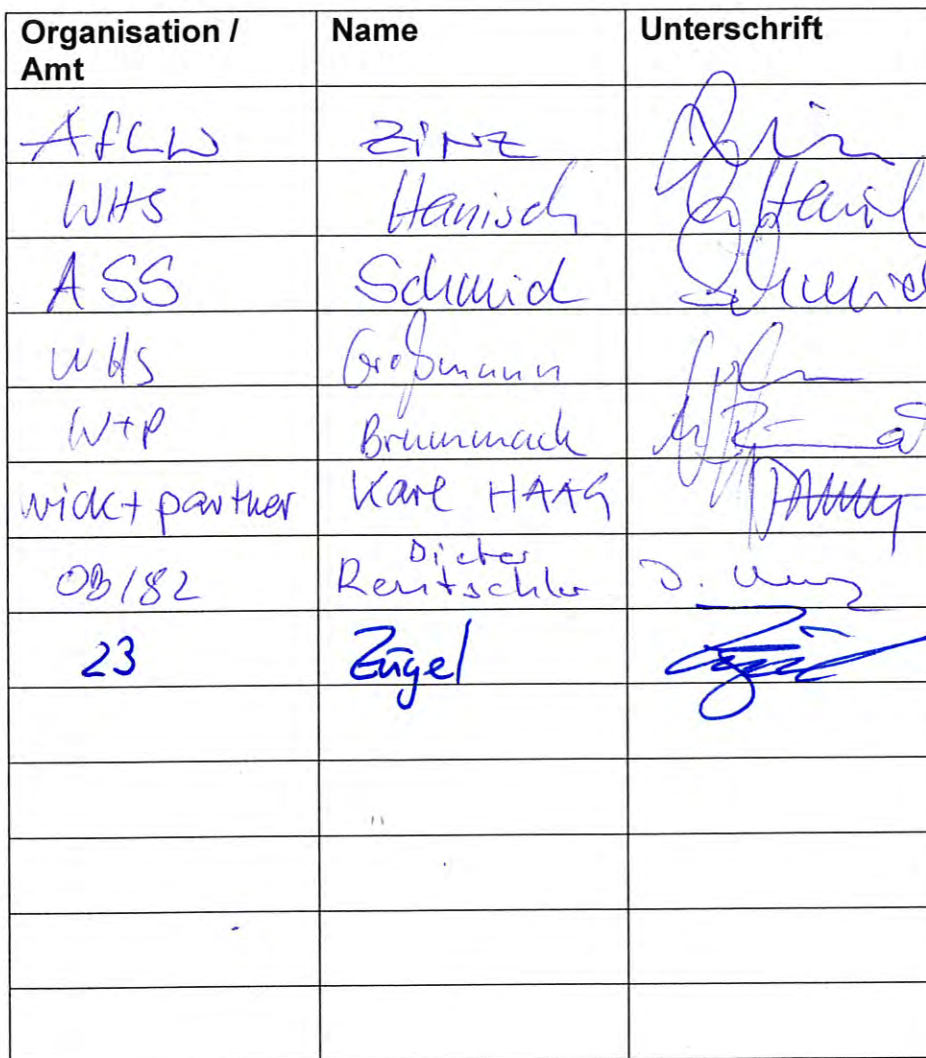 Organisation / Name Unterschrift
Amt
AfLW ZINZ
WHS Hanisch
ASS Schmid Schmid
WHS Großmann
W+P Brummack
wick+partner Karl HAAG
OB/82 Dieter Rentschler
23 Zügel Zügel